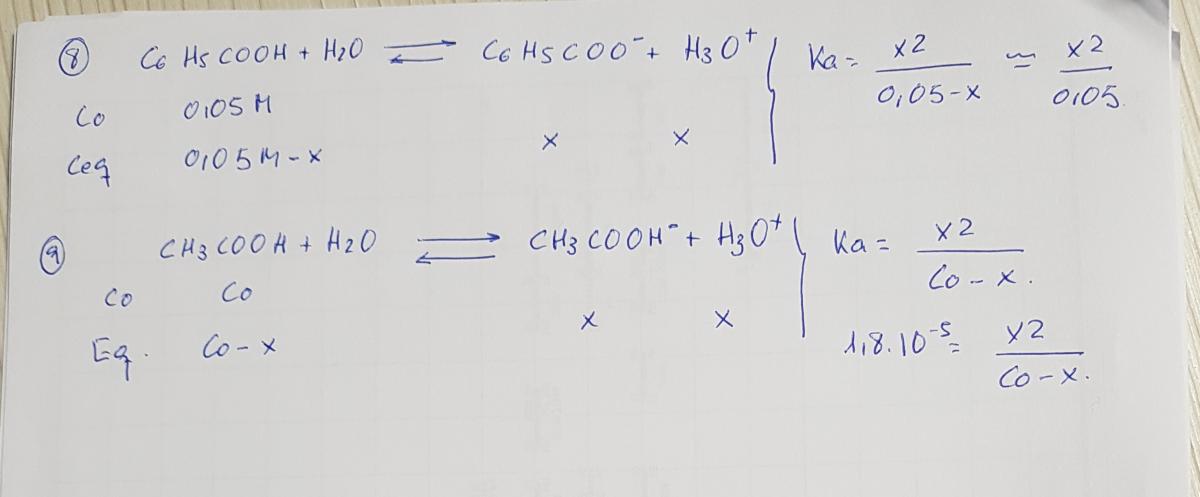 ⑧ C6 H5 COOH + H2O ⇌ C6 H5 COO⁻ + H3O⁺ } Ka = x2 / 0,05-x ≃ x2 / 0,05.
Co 0,05 M
Ceq 0,05 M - x x x
⑨ CH3 COOH + H2O ⇌ CH3 COOH⁻ + H3O⁺ } Ka = x2 / Co - x.
Co Co
Eq. Co - x x x 1,8.10⁻⁵ = x2 / Co - x.